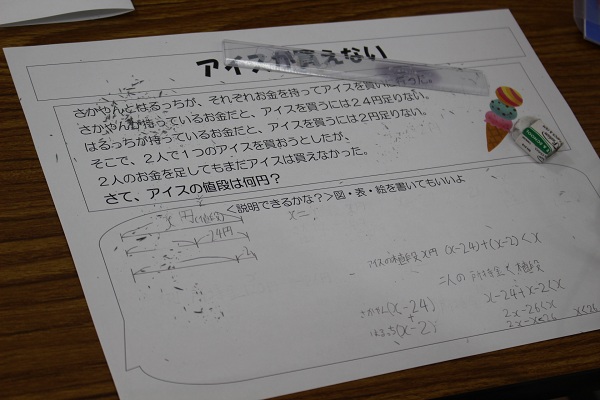 アイスが買えない
さかやんとはるっちが、それぞれお金を持ってアイスを買い
さかやんが持っているお金だと、アイスを買うには24円足りない。
はるっちが持っているお金だと、アイスを買うには2円足りない。
そこで、2人で1つのアイスを買おうとしたが、
2人のお金を足してもまだアイスは買えなかった。
さて、アイスの値段は何円？
<説明できるかな？>図・表・絵を書いてもいいよ
x 円(値段)
x=
24円
2
アイスの値段 x円 (x-24)+(x-2)<x
二人の所持金<値段
さかやん(x-24)
+
はるっち(x-2)
x-24+x-2<x
2x-26<x
2x-x<26
x<26